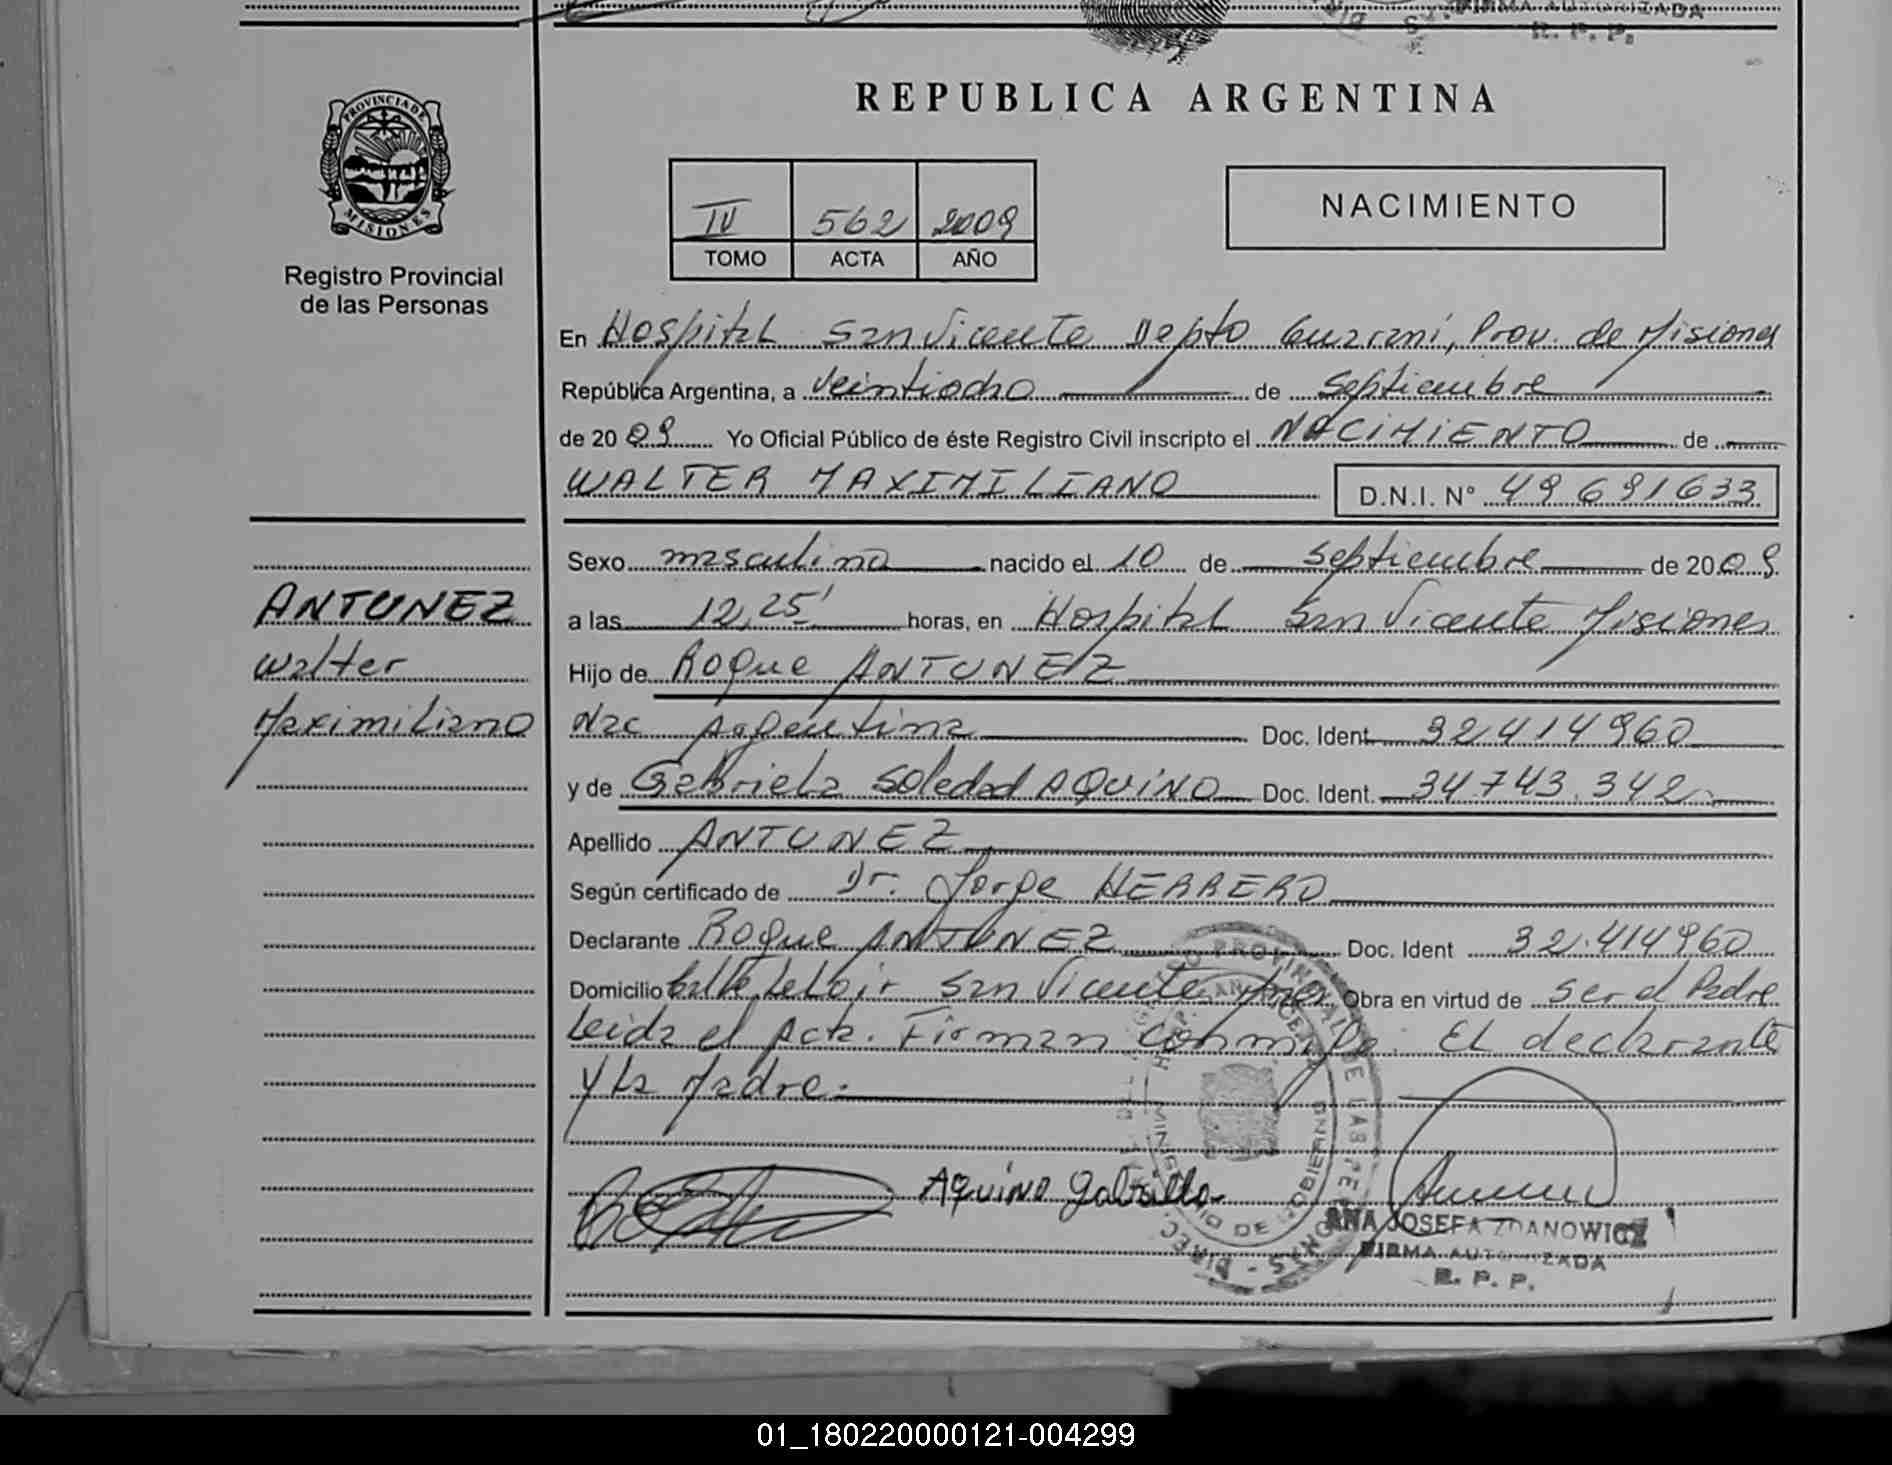 FIRMA AUTORIZADA
R. P. P.
PROVINCIA DE
MISIONES
Registro Provincial
de las Personas
REPUBLICA ARGENTINA
IV 562 2009
TOMO ACTA AÑO
NACIMIENTO
En Hospital San Vicente Depto Guaraní, Prov. de Misiones
República Argentina, a veintiocho de Septiembre
de 2009 Yo Oficial Público de éste Registro Civil inscripto el NACIMIENTO de
WALTER MAXIMILIANO D.N.I. N° 49691633
Sexo masculino nacido el 10 de Septiembre de 2009
a las 12,25' horas, en Hospital San Vicente Misiones
Hijo de Roque ANTUNEZ
Nac Argentina Doc. Ident. 32414960
y de Gabriela Soledad AQUINO Doc. Ident. 34.743.342
Apellido ANTUNEZ
Según certificado de Dr. Jorge HERRERO
Declarante Roque ANTUNEZ Doc. Ident 32.414960
Domicilio Calle Leloir San Vicente Mnes Obra en virtud de ser el Padre
Leida el Acta. Firman conmigo. El declarante
y la Madre.
ANTUNEZ
Walter
Maximiliano
Aquino Gabriela
ANA JOSEFA ZDANOWICZ
FIRMA AUTORIZADA
R. P. P.
01_180220000121-004299